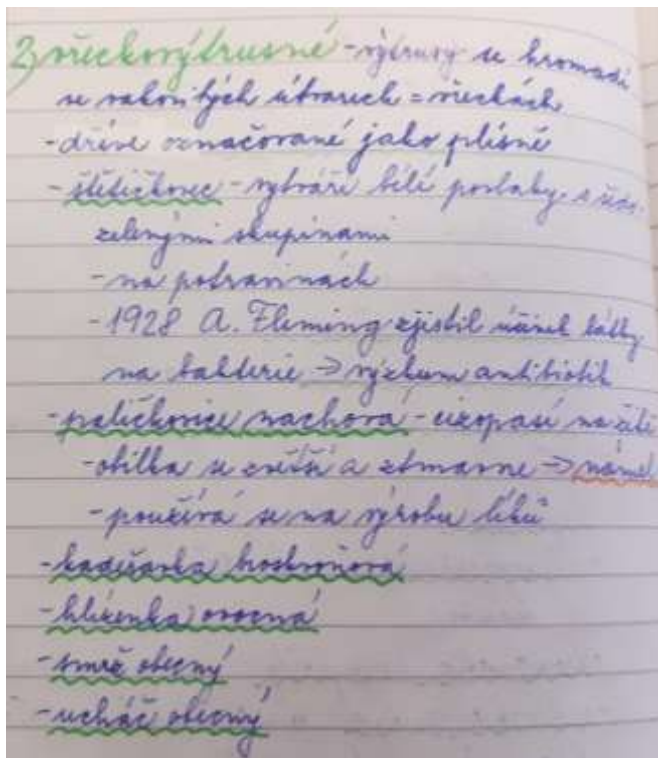 2) vřeckovýtrusné - výtrusy se hromadí
ve vakovitých útvarech = vřeckách
- dříve označované jako plísně
- štětičkovec - vytváří bílé povlaky s
zelenými skupinami
- na potravinách
- 1928 A. Fleming zjistil účinek látky
na bakterie → výzkum antibiotik
- paličkovice nachová - cizopasí na žitě
- obilka se zvětší a ztmavne → námel
- používá se na výrobu léků
- kadeřavka broskvoňová
- hlízenka ovocná
- smrž obecný
- ucháč obecný